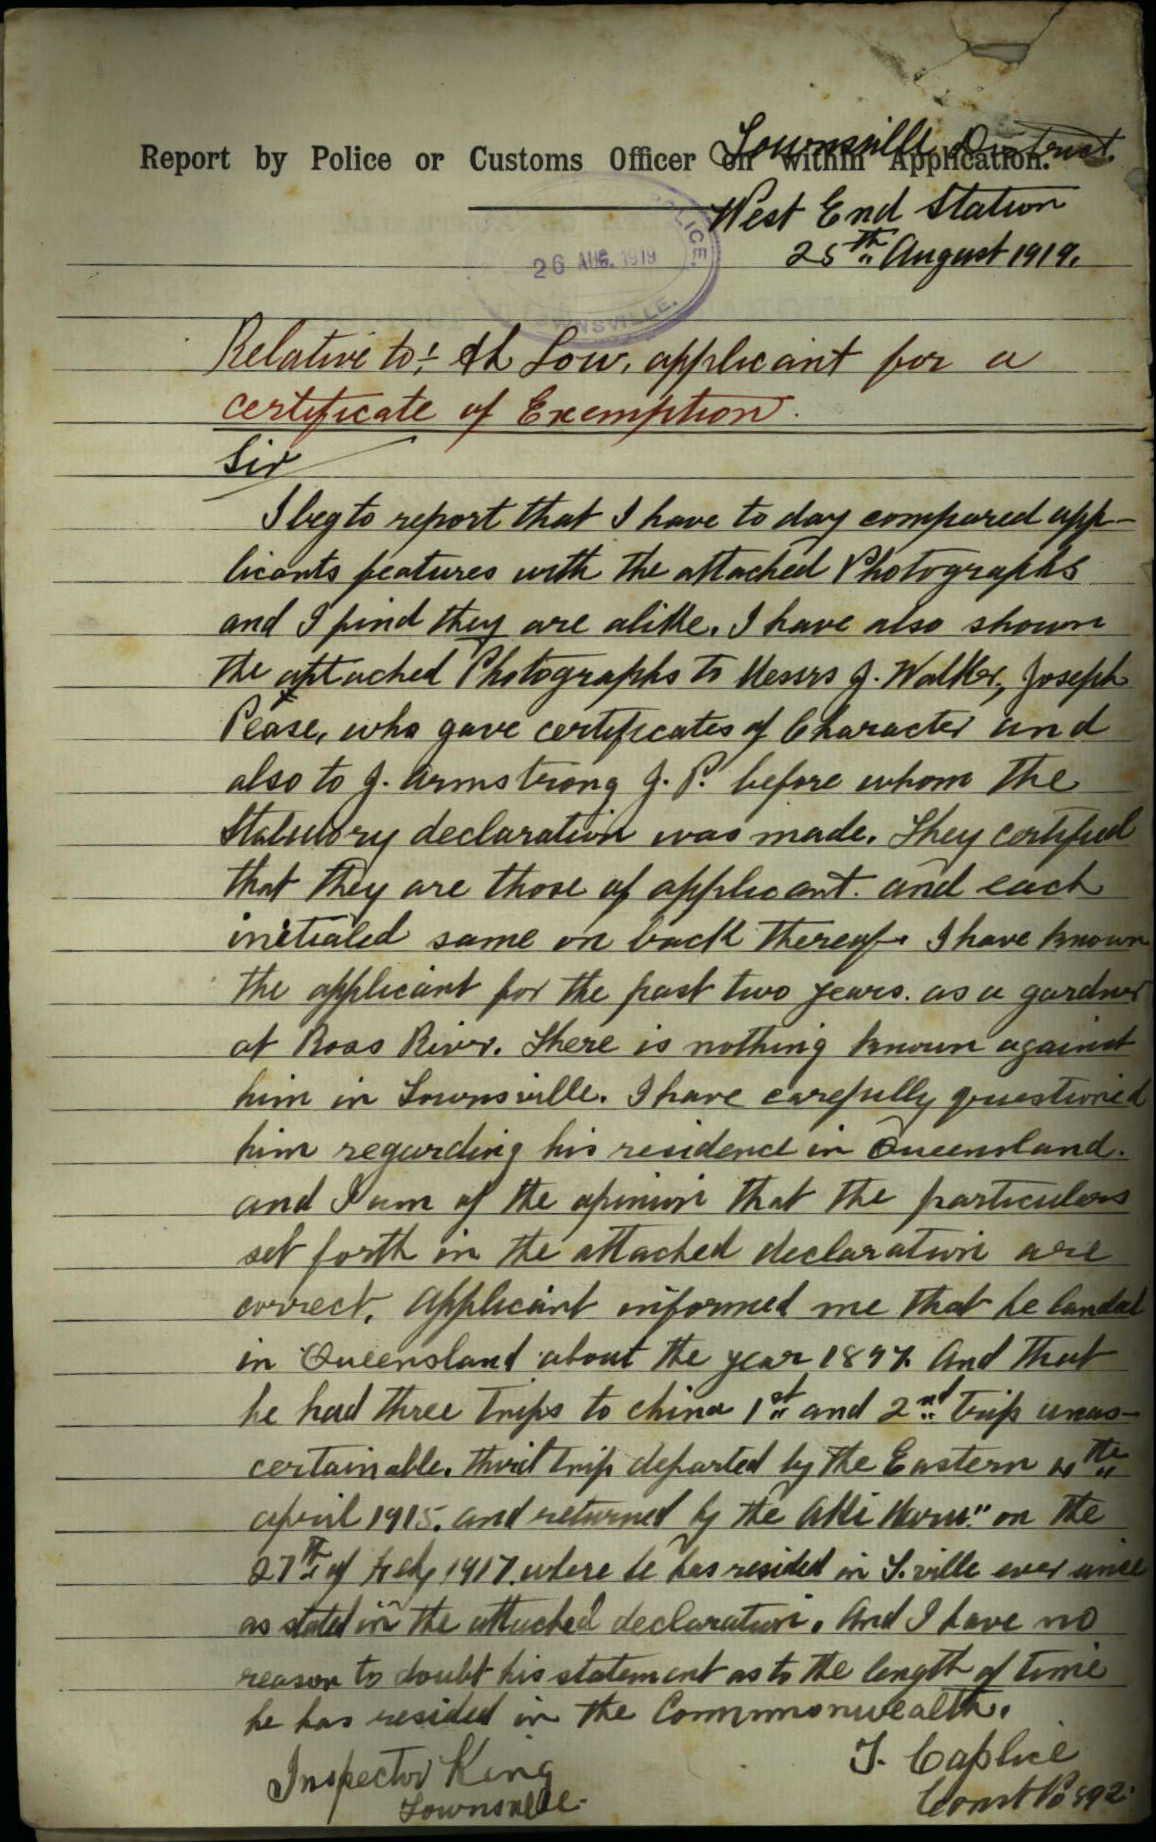 Townsville District.
Report by Police or Customs Officer on within Application.
West End Station
25th August 1919.
POLICE
26 AUG. 1919
TOWNSVILLE.
Relative to:- Ah Low, applicant for a
certificate of Exemption.
Sir
I beg to report that I have to day compared app-
licants features with the attached Photographs
and I find they are alike. I have also shown
the attached Photographs to Messrs J. Walker, Joseph
Pease, who gave certificates of Character and
also to J. Armstrong J. P. before whom the
Statutory declaration was made. They certified
that they are those of applicant. and each
initialed same on back thereof. I have known
the applicant for the past two years. as a gardner
at Ross River. There is nothing known against
him in Townsville. I have carefully questioned
him regarding his residence in Queensland.
and I am of the opinion that the particulars
set forth in the attached declaration are
correct. Applicant informed me that he landed
in Queensland about the year 1897. And that
he had three trips to China 1st and 2nd trip unas-
certainable. third trip departed by the Eastern th
april 1915. and returned by the Aki Maru" on the
27th of Feby 1917. where he has resided in T.ville ever since
as stated in the attached declaration. And I have no
reason to doubt his statement as to the length of time
he has resided in the Commmonwealth.
Inspector King
Townsville.
T. Caplice
Const No 892.